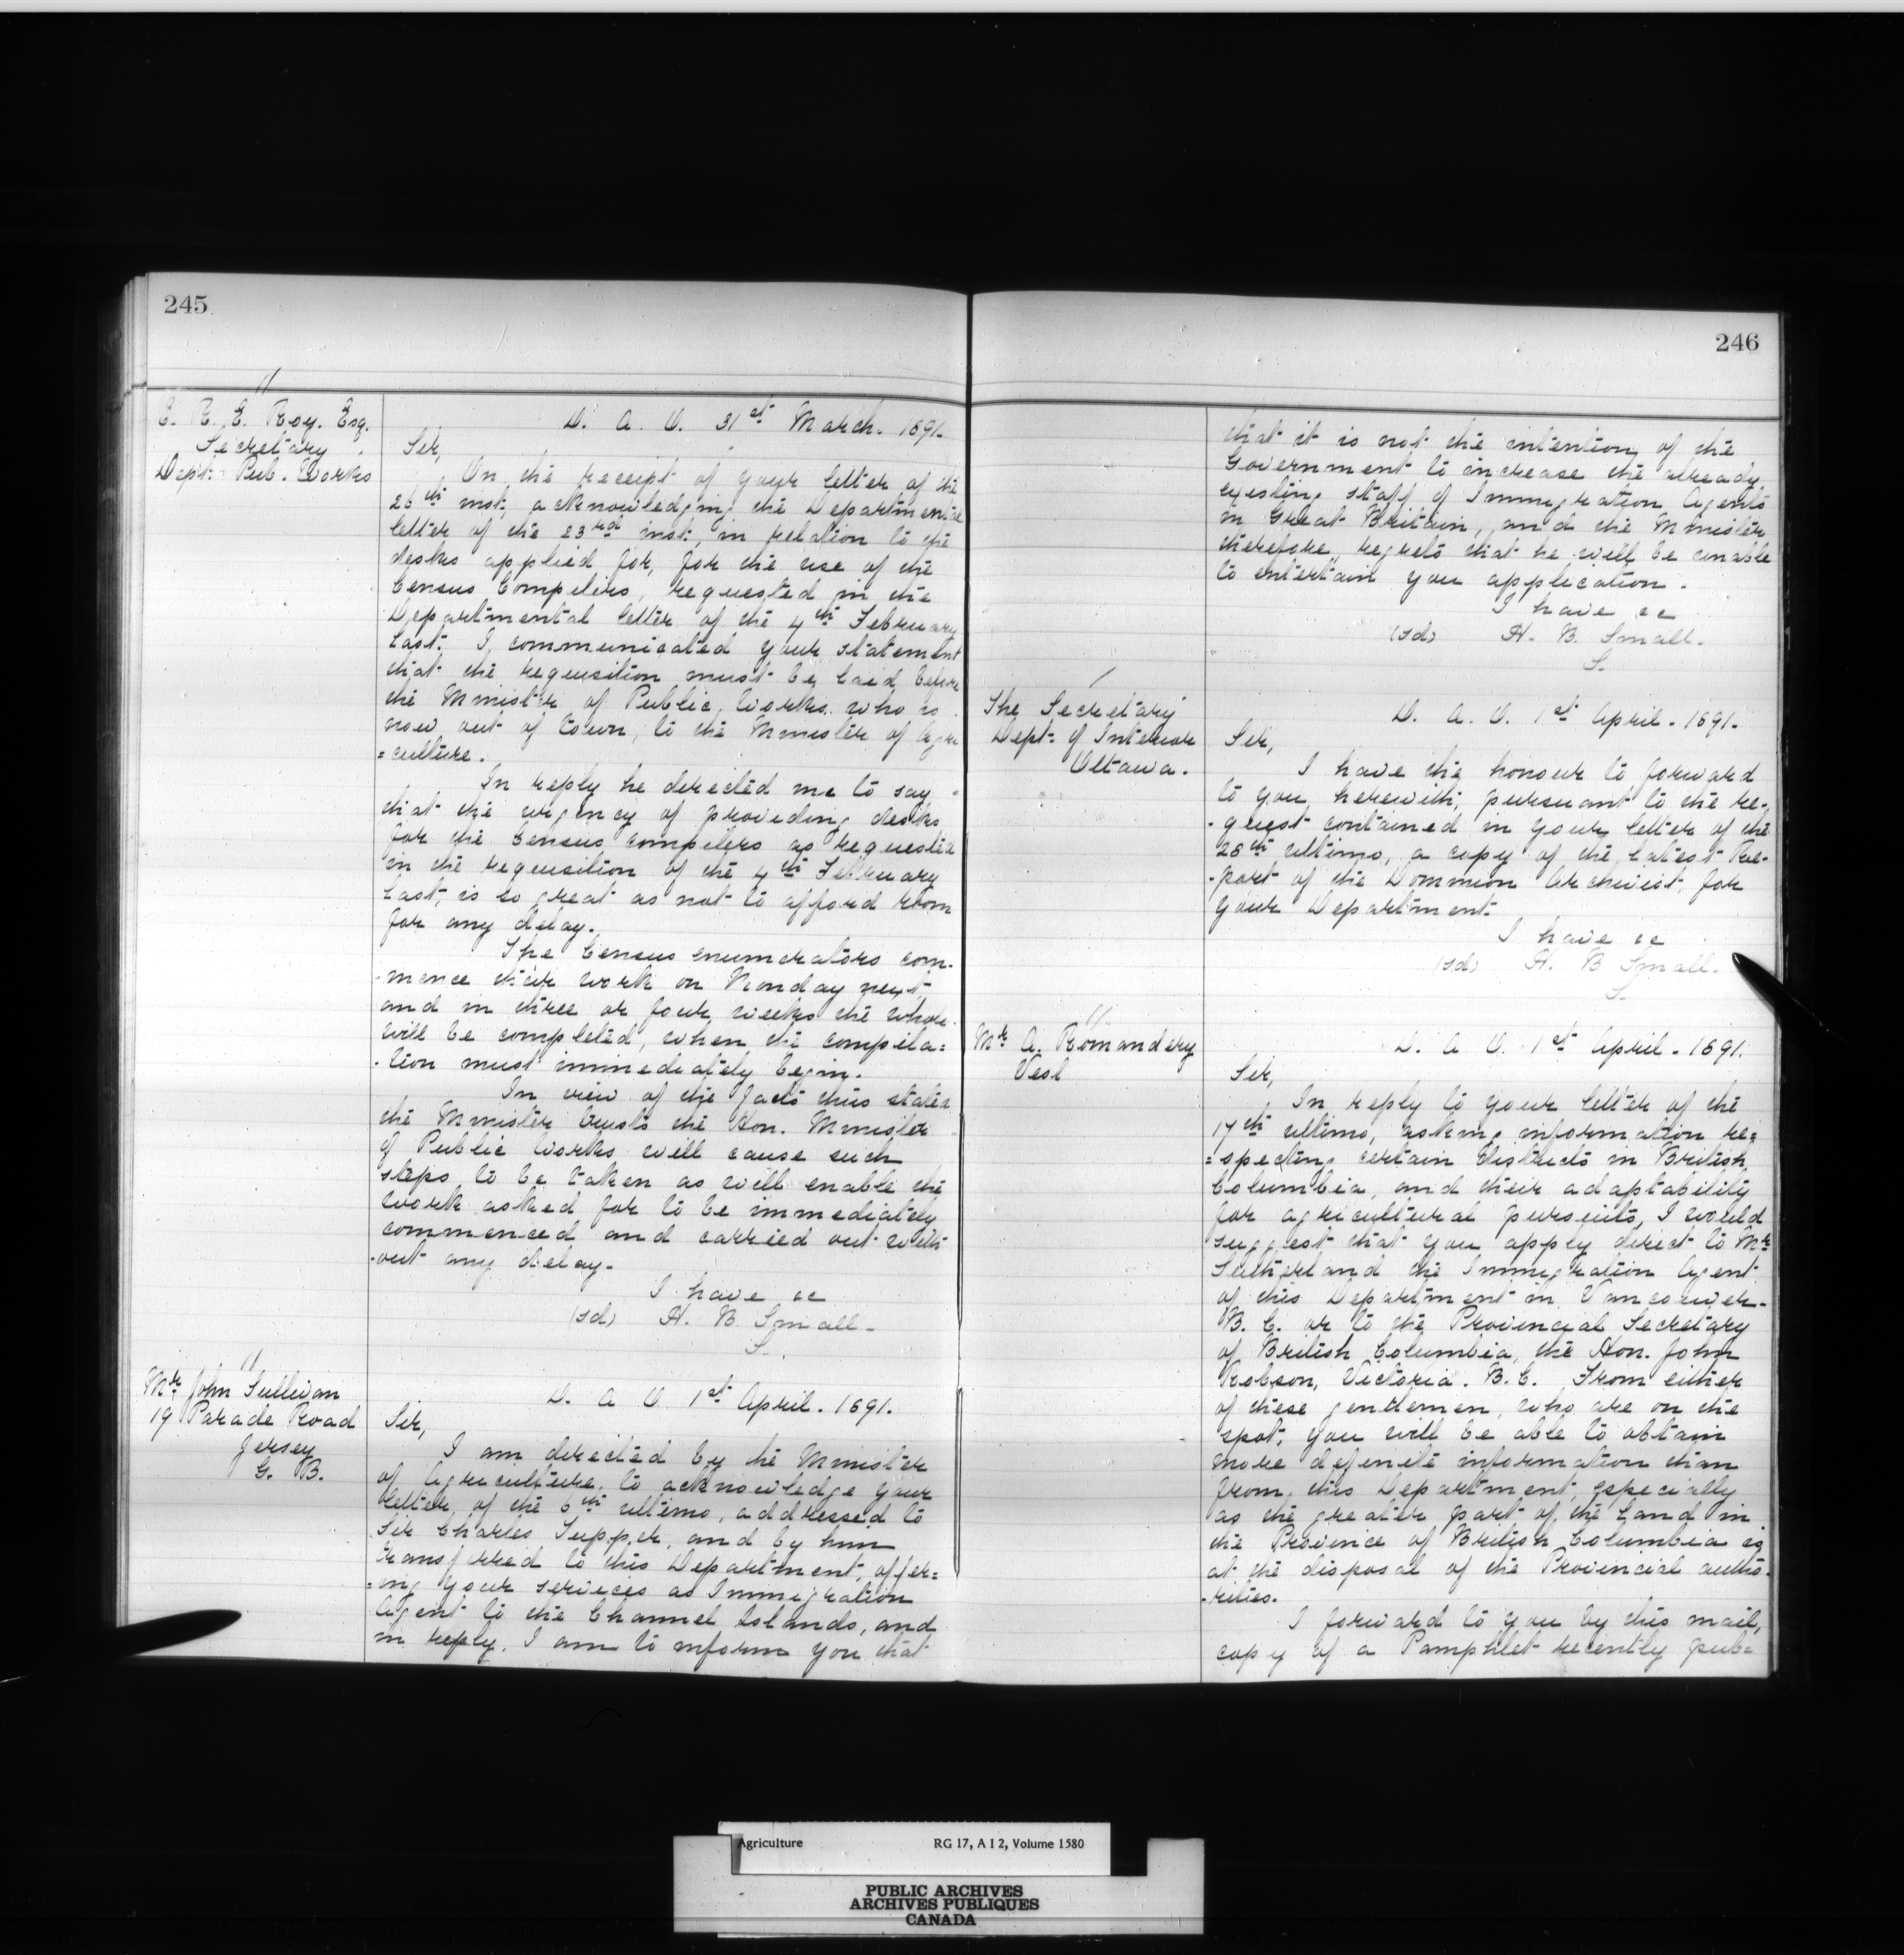 245
E. R. E. Roy. Esq.
Secretary
Dept: Pub. Works
D. A. O. 31st March. 1891.
Sir,
On the receipt of your letter of the
26th inst, acknowledging the Departmental
letter of the 23rd inst, in relation to the
desks applied for, for the use of the
Census Compilers, requested in the
Departmental letter of the 4th February
last. I communicated your statement
that the requisition must be laid before
the Minister of Public Works who is
now out of town, to the Minister of Agri
=culture.
In reply he directed me to say
that the urgency of providing desks
for the Census compilers as requested
in the requisition of the 4th February
last, is so great as not to afford room
for any delay.
The Census enumerators com-
-mence their work on Monday next
and in three or four weeks the whole
will be completed, when the compila=
-tion must immediately begin.
In view of the facts thus stated
the Minister trusts the Hon. Minister
of Public Works will cause such
steps to be taken as will enable the
work asked for to be immediately
commenced and carried out with
-out any delay.
I have &c
(sd) H. B Small.
S.
Mr John Sullivan
19 Parade Road
Jersey
G. B.
D. A O 1st April. 1891.
Sir,
I am directed by the Minister
of Agriculture, to acknowledge your
letter of the 6th ultimo, addressed to
Sir Charles Tupper, and by him
transferred to this Department, offer=
=ing your services as Immigration
Agent to the Channel Islands, and
in reply, I am to inform you that
246
that it is not the intention of the
Government to increase the already
existing staff of Immigration Agents
in Great Britain, and the Minister
therefore, regrets that he will be unable
to entertain you application.
I have &c
(sd) H. B. Small.
S.
The Secretary
Dept: of Interior
Ottawa.
D. A. O. 1st April. 1891.
Sir,
I have the honour to forward
to you herewith, pursuant to the re-
-quest contained in your letter of the
28th ultimo, a copy of the latest Re-
-port of the Dominion Archivist, for
your Department.
I have &c
(sd) H. B Small.
S.
Mr A. Romandery
Vesl
D. A O. 1st April. 1891.
Sir,
In reply to your letter of the
17th ultimo, asking information re=
=specting certain districts in British
Columbia, and their adaptability
for agricultural pursuits, I would
suggest that you apply direct to Mr
Sutherland the Immigration Agent
of this Department in Vancouver-
B. C. or to the Provincial Secretary
of British Columbia, the Hon. John
Robson, Victoria. B. C. From either
of these gentlemen, who are on the
spot, you will be able to obtain
more definite information than
from this Department, especially
as the greater part of the Land in
the Province of British Columbia is
at the disposal of the Provincial autho-
-rities.
I forward to you by this mail,
copy of a Pamphlet recently pub=
Agriculture RG 17, A I 2, Volume 1580
PUBLIC ARCHIVES
ARCHIVES PUBLIQUES
CANADA